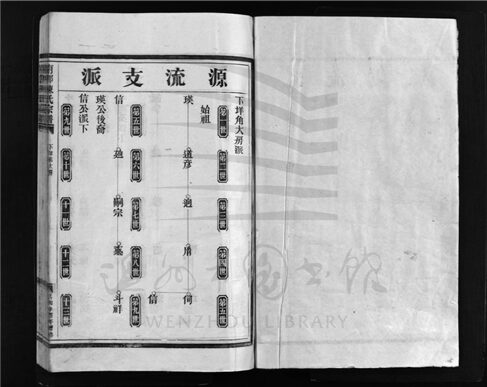 源流支派
下垟角大房派
第一世
第二世
第三世
第四世
第五世
始祖
瑛
道彦
迥
用
伺
信
第五世
第六世
第七世
第八世
第九世
信
嗣宗
斗祥
瑛公後裔
信公派下
第九世
第十世
十一世
十二世
十三世
陳氏宗譜
WENZHOU LIBRARY